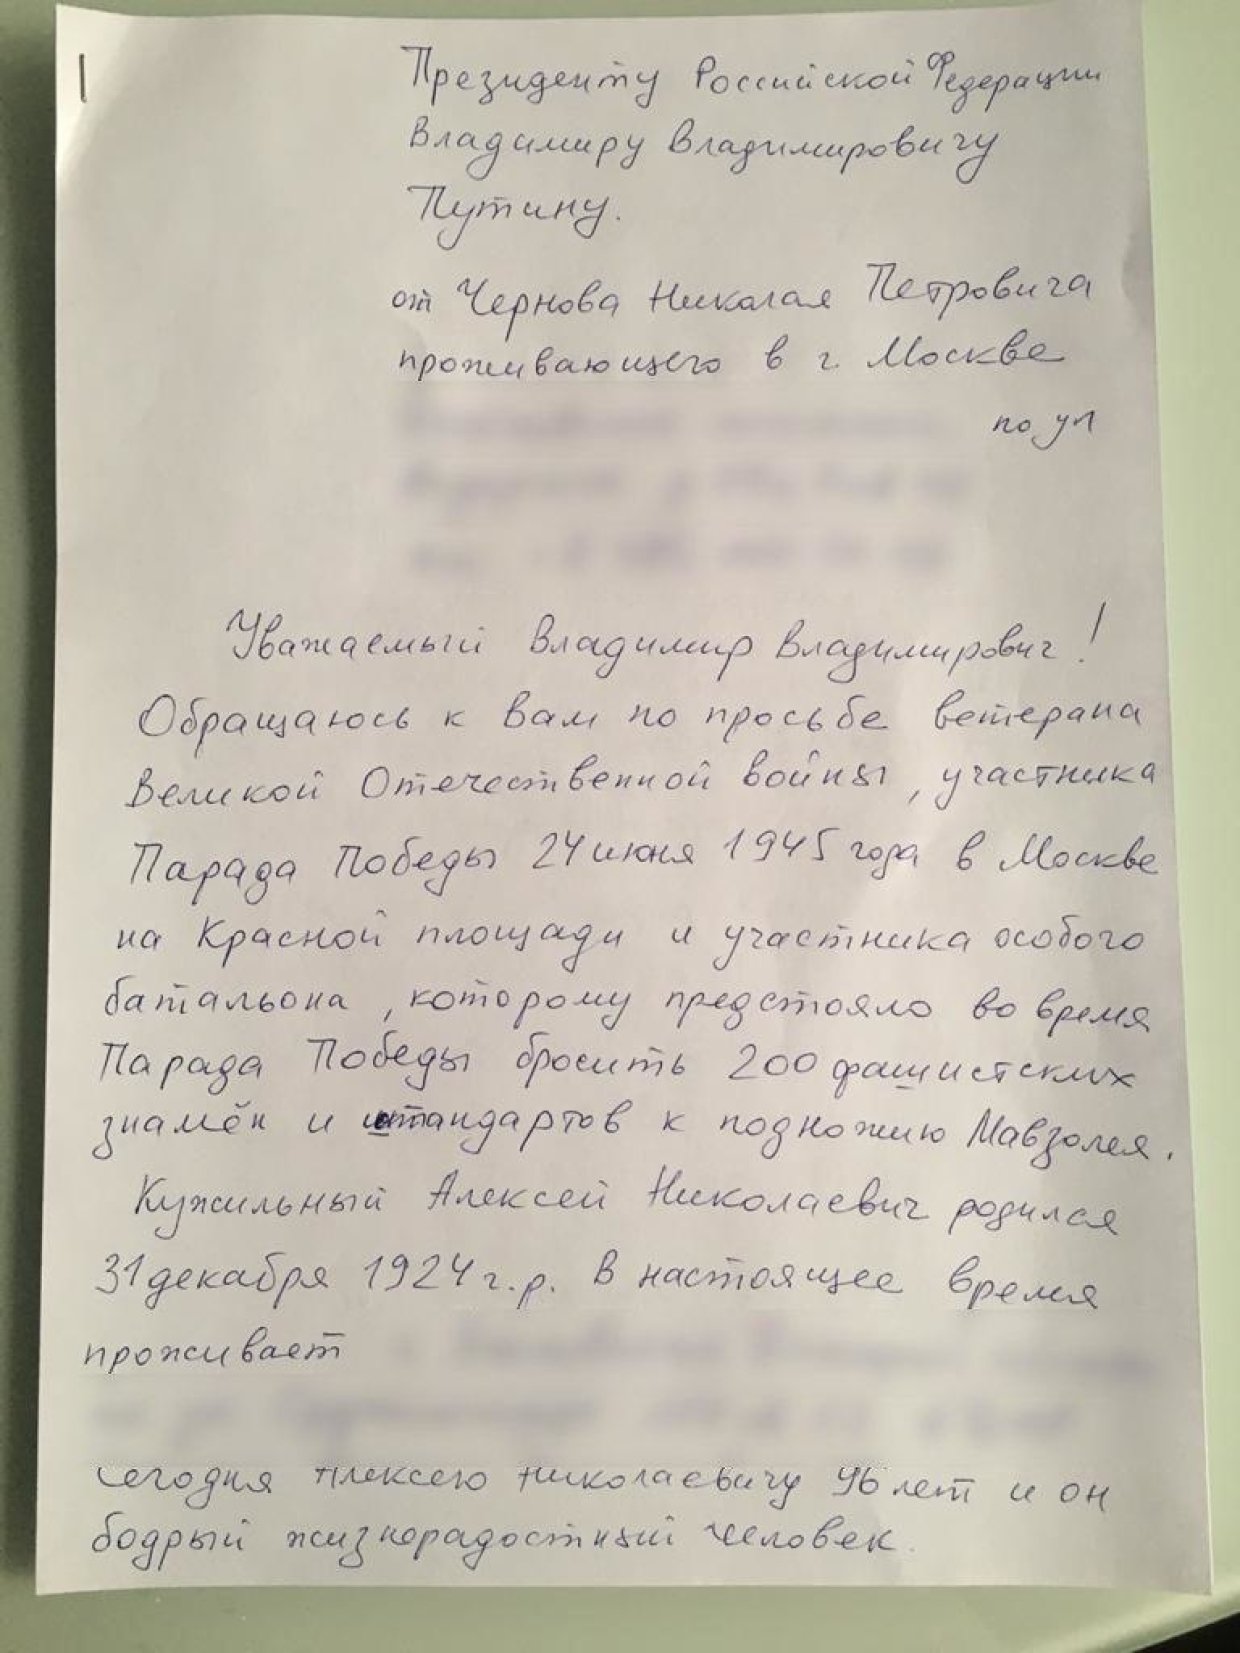 Президенту Российской Федерации
Владимиру Владимировичу
Путину.
от Чернова Николая Петровича
проживающего в г. Москве
по ул
Уважаемый Владимир Владимирович!
Обращаюсь к Вам по просьбе ветерана
Великой Отечественной войны, участника
Парада Победы 24 июня 1945 года в Москве
на Красной площади и участника особого
батальона, которому предстояло во время
Парада Победы бросить 200 фашистских
знамён и штандартов к подножию Мавзолея.
Кужильный Алексей Николаевич родился
31 декабря 1924 г.р. В настоящее время
проживает
Сегодня Алексею Николаевичу 96 лет и он
бодрый жизнерадостный человек.